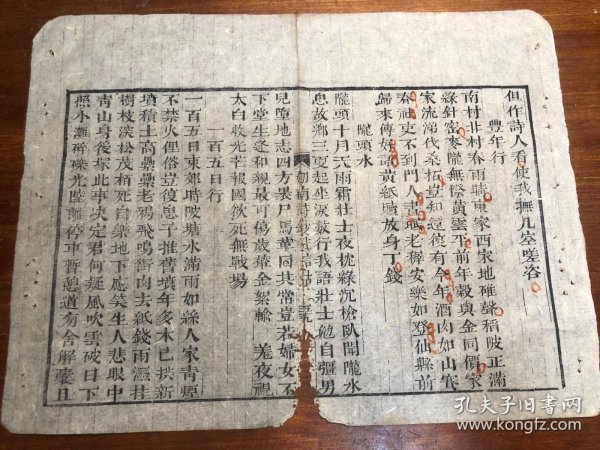 但作詩人看使我撫几空嗟咨
豐年行
南村北村春雨晴東家西家地碓聲稻陂正滿
綠針密麥隴無際黃雲平前年穀與金同價家
家流涕伐桑柘豈知還復有今年酒肉如山賽
春社吏不到門人晝眠老稚安樂如登仙縣前
歸來傳好語黃紙續放身丁錢
隴頭水
隴頭十月天雨霜壯士夜挽綠沉槍臥聞隴水
思故鄉三更起坐淚數行我語壯士勉自彊男
兒墮地志四方裹尸馬革固其常豈若婦女不
下堂生逢和親最可傷歲輦金絮輸　羌夜視
太白收光芒報國欲死無戰場
一百五日行
一百五日東郊時陂塘水滿雨如絲人家青煙
不禁火俚俗豈復思子推舊墳年多木已拱新
墳積土高纍纍老鴉飛鳴銜肉去紙錢雨濕挂
樹枝淡松茂柏死自樂地下應笑生人悲眼中
青山身後塚此事決定君何疑風吹雲破日下
照水灘磷磷光陸離停車暫憩道有舍解囊且
孔夫子旧書网
kongfz.com
孔夫子旧书网
www.kongfz.com